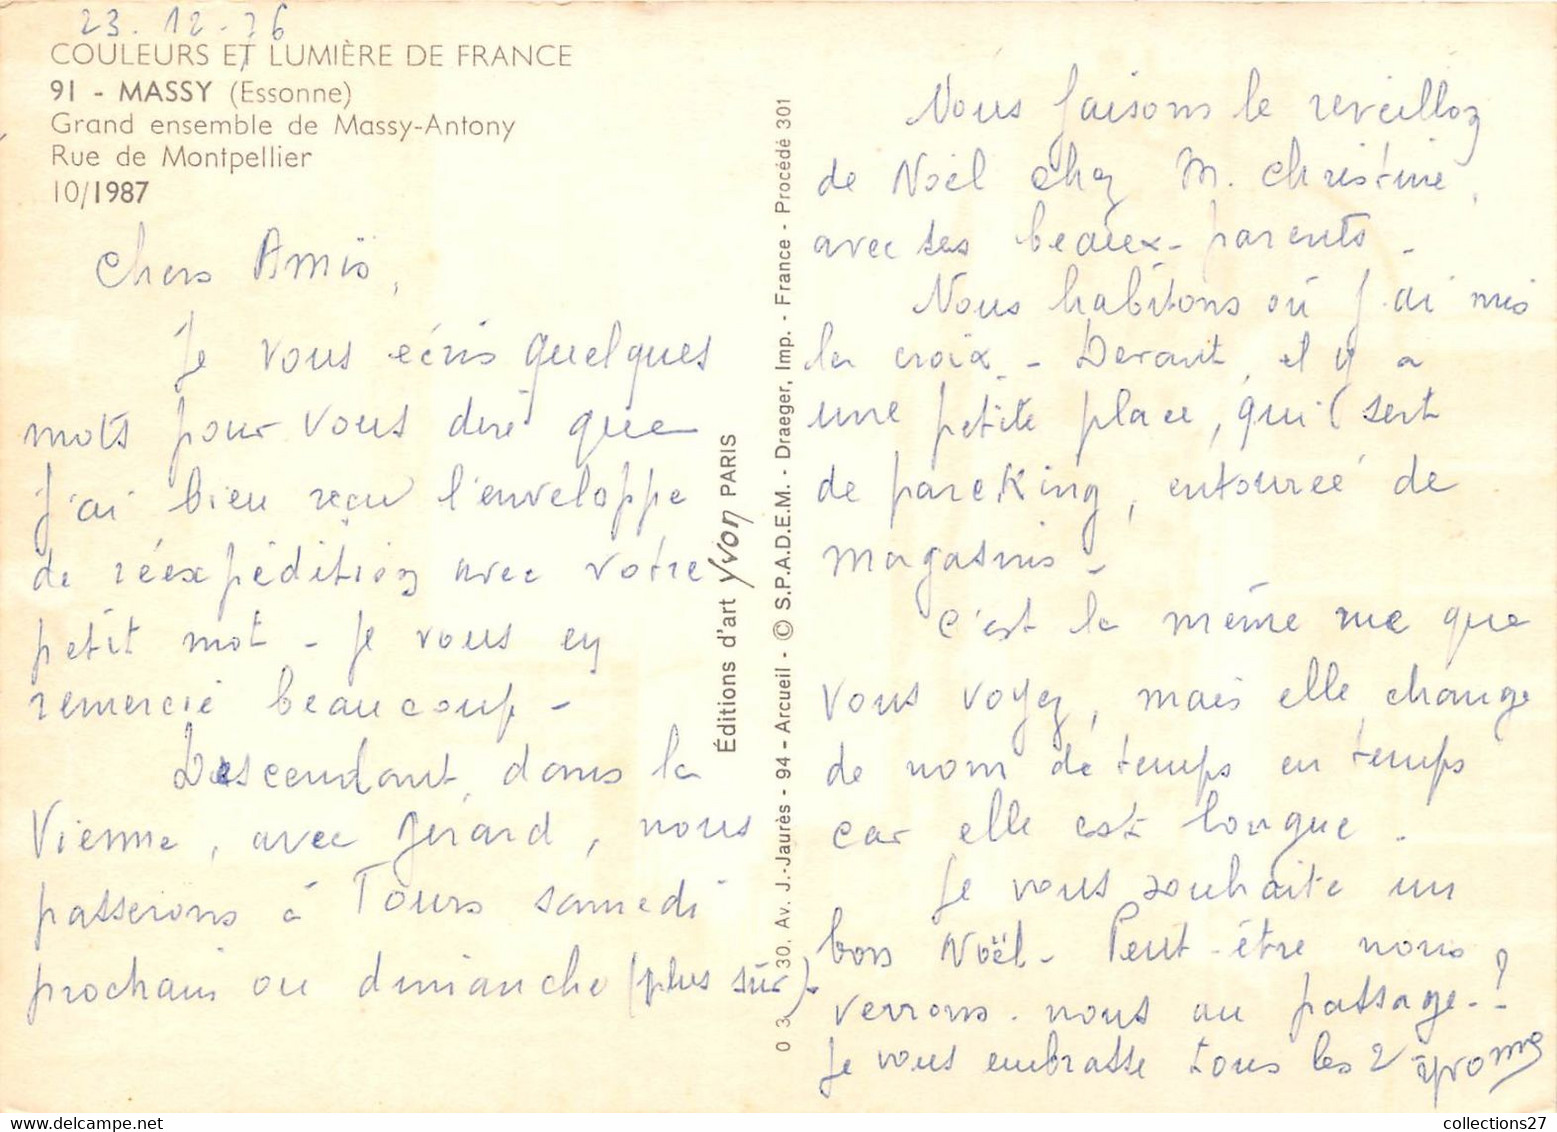 23.12-76
COULEURS ET LUMIÈRE DE FRANCE
91 - MASSY (Essonne)
Grand ensemble de Massy-Antony
Rue de Montpellier
10/1987
Chers Amis,
Je vous écris quelques
mots pour vous dire que
j'ai bien reçu l'enveloppe
de réexpédition avec votre
petit mot - Je vous en
remercie beaucoup -
Descendant, dans la
Vienne, avec Gérard, nous
passerons à Tours samedi
prochain ou dimanche (plus sûr).
Éditions d'art Yvon PARIS
0 3 30, Av. J.-Jaurès - 94 - Arcueil - © S.P.A.D.E.M. - Draeger, Imp. - France - Procédé 301
Nous faisons le réveillon
de Noël chez M. Christine,
avec ses beaux-parents -
Nous habitons où j'ai mis
la croix - Devant, il y a
une petite place, qui sert
de parcking, entourée de
magasins -
C'est la même rue que
vous voyez, mais elle change
de nom de temps en temps
car elle est longue -
Je vous souhaite un
bon Noël - Peut-être nous
verrons-nous au passage - ?
Je vous embrasse tous les 2
collections27